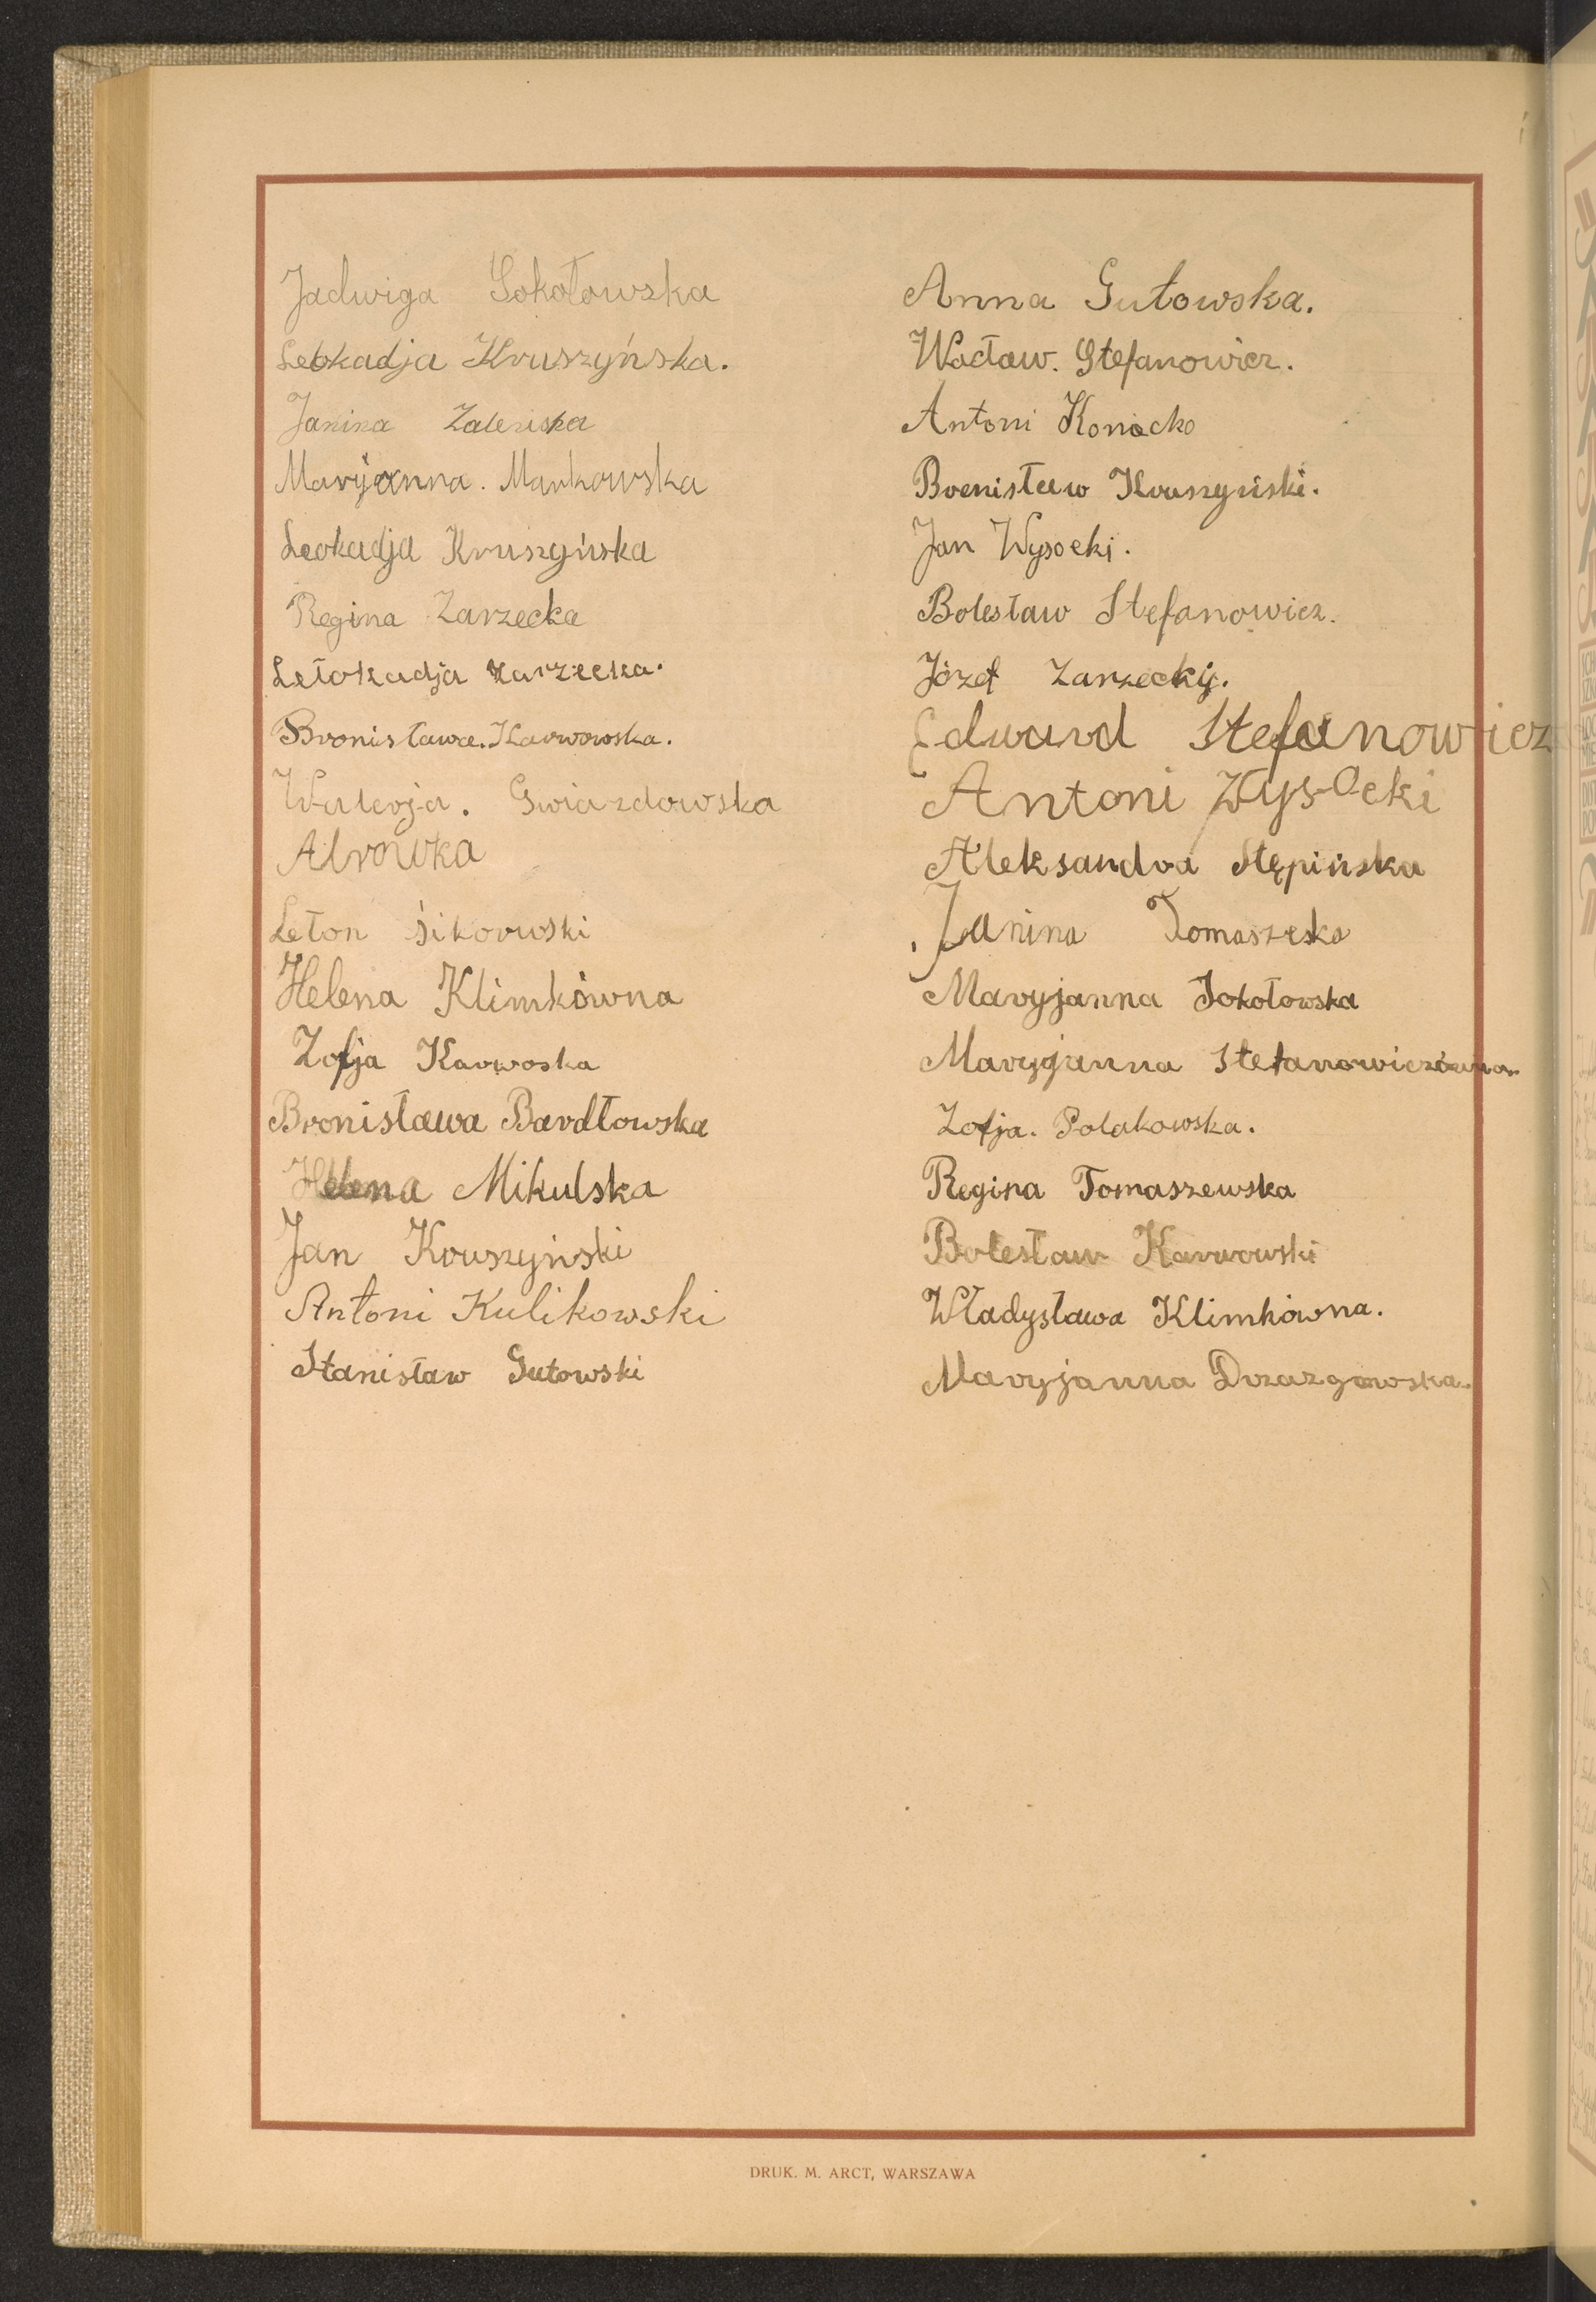 Jadwiga Sokołowska
Leokadja Kruszyńska.
Janina Zaleuska
Maryjanna. Markowska
Leokadja Kruszyńska
Regina Zarzecka
Letokadja Zarzecka.
Bronisława. Karwowska.
Walerja. Gwiazdowska
Leton śikorowski
Helena Klimkówna
Zofja Karwoska
Bronisława Bardłowska
Helena Mikulska
Jan Kruszyński
Antoni Kulikowski
Stanisław Gutowski
Anna Gutowska.
Wacław. Stefanowicz.
Antoni Konocko
Bronisław Kruszyński.
Jan Wysocki.
Bolesław Stefanowicz.
Józef Zarzecki.
Edward Stefanowicz
Antoni Wysocki
Aleksandra Stępińska
Janina Tomaszeska
Maryjanna Sokołowska
Maryjanna Stefanowiczówna
Zofja. Polakowska.
Regina Tomaszewska
Bolesław Karwowski
Władysława Klimkówna.
Maryjanna Drzazgowska.
DRUK. M. ARCT, WARSZAWA